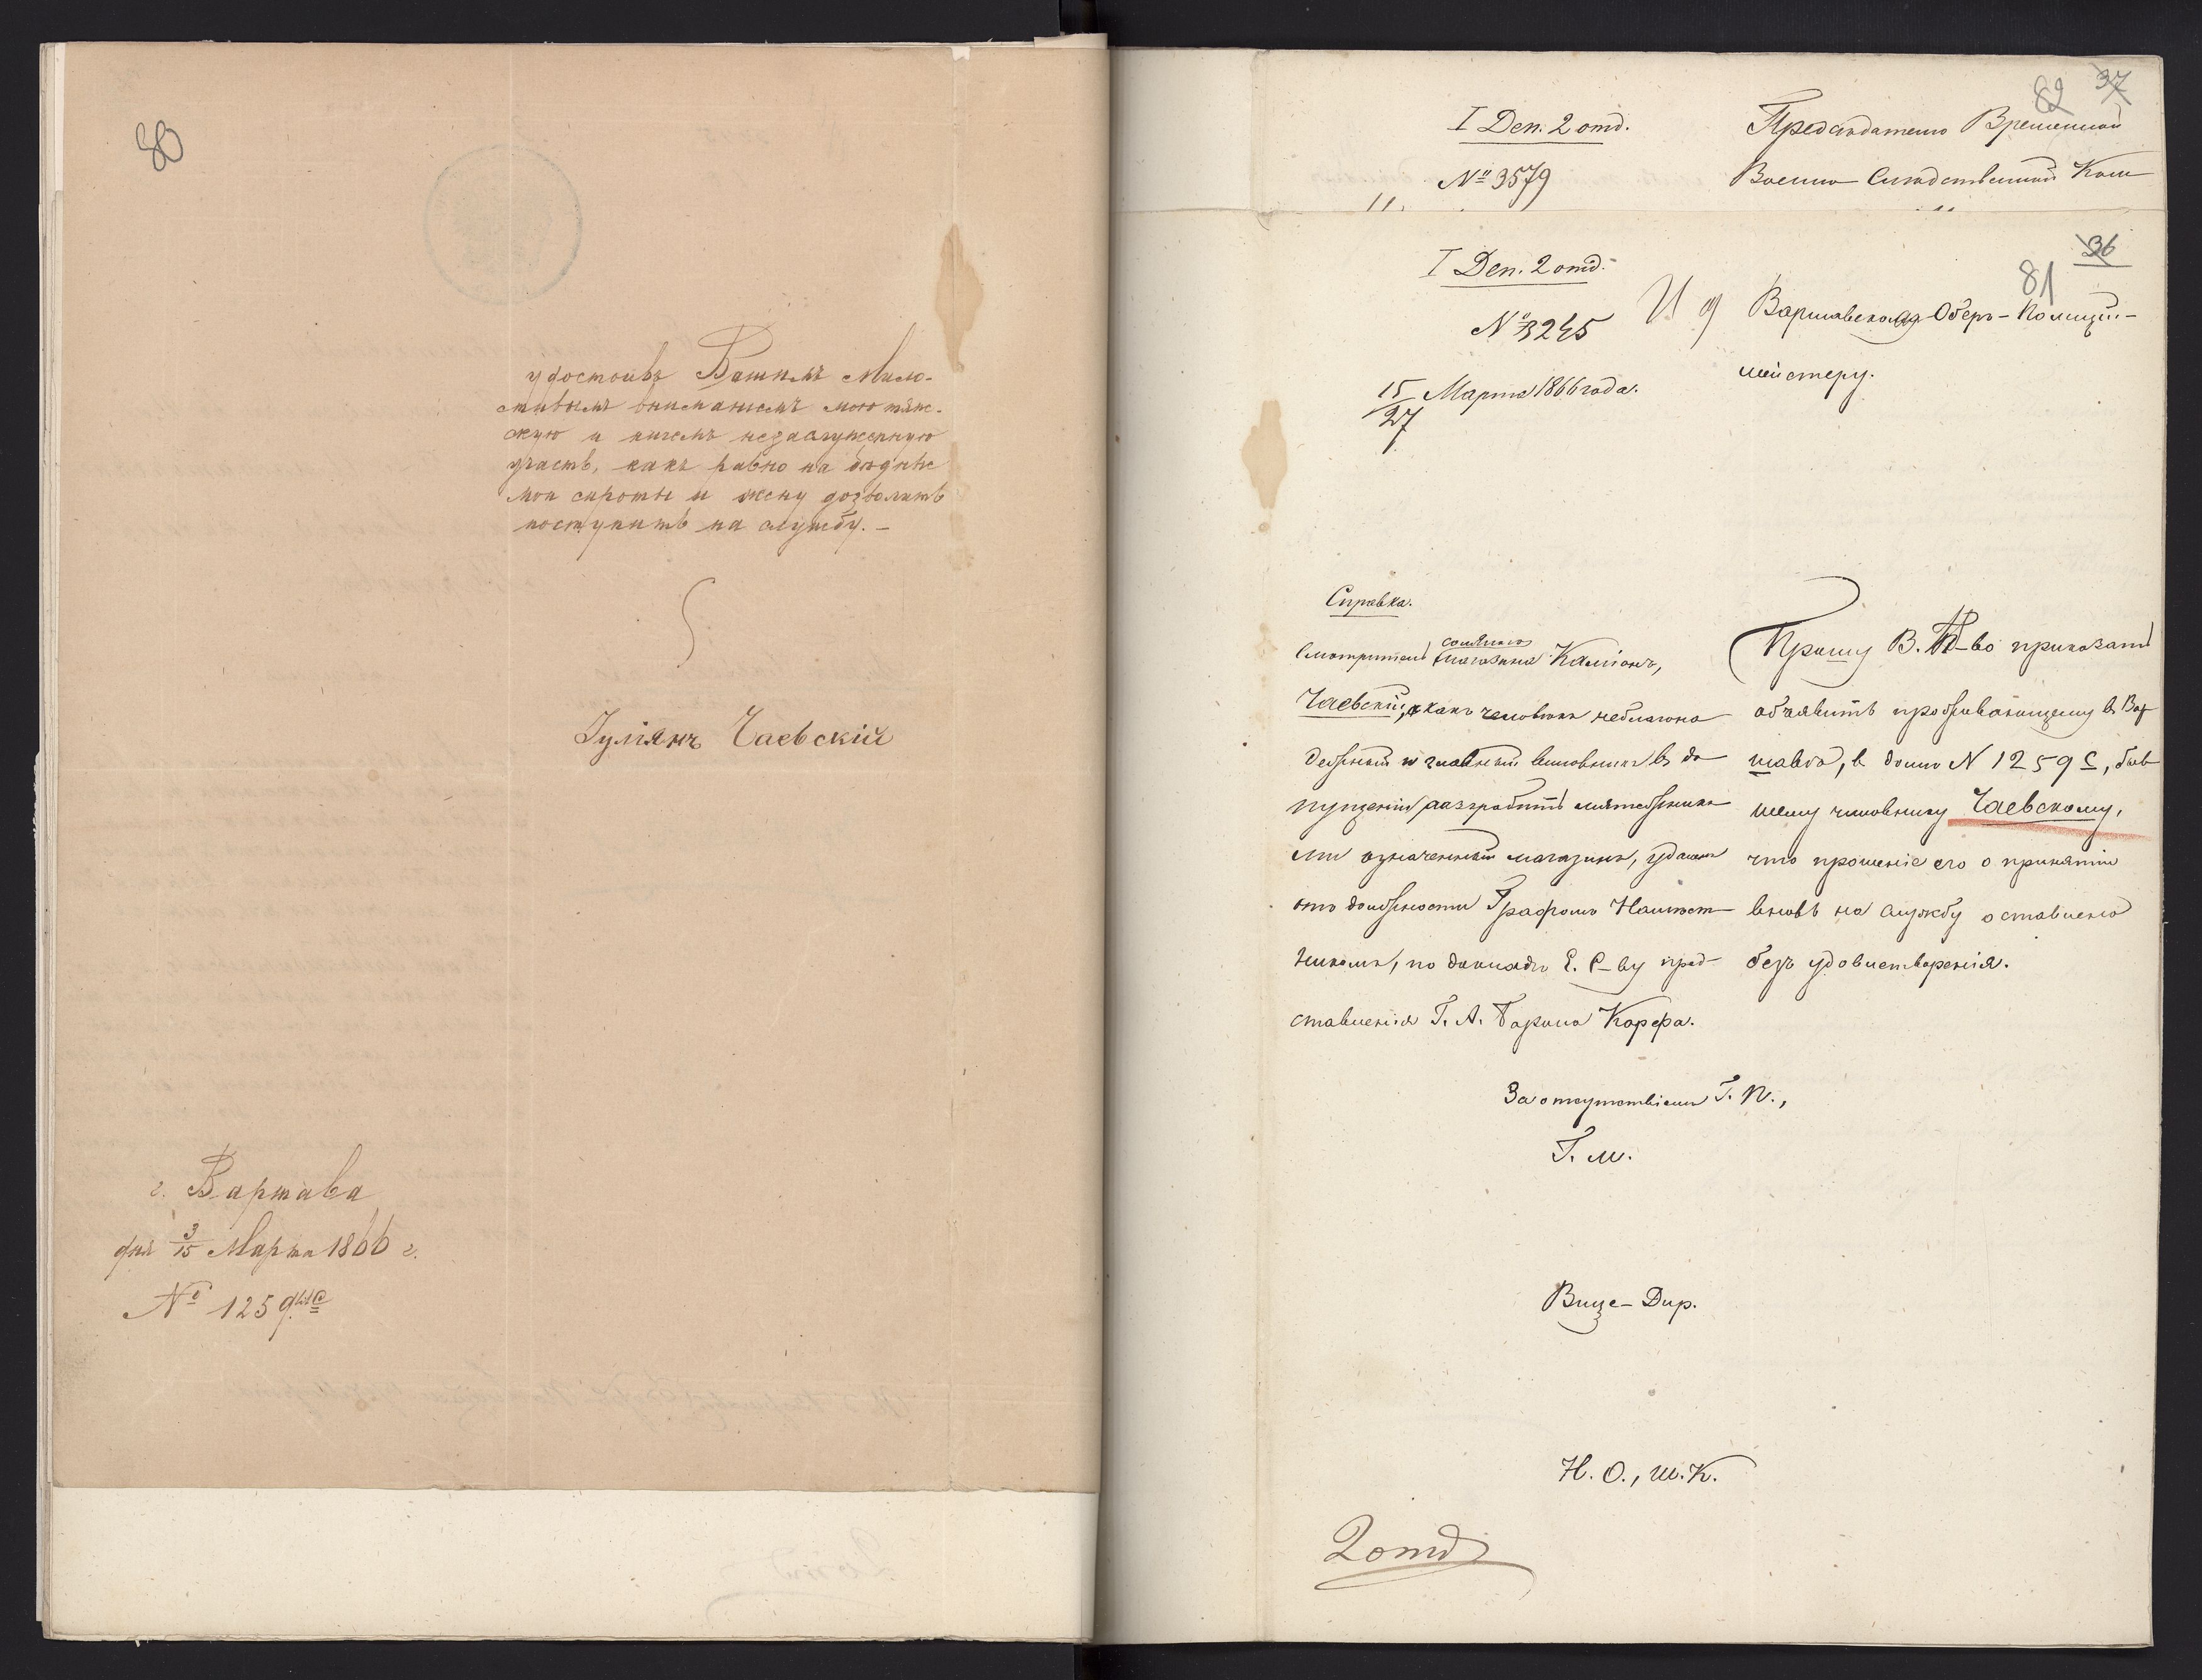 80
удостоивъ Вашимъ Мило-
стивымъ вниманіемъ мою тяж-
скую и ничемъ незаслуженную
участь, какъ равно на бѣдные
мои сироты и жену дозволить
поступить на службу. —
Іуліянъ Чаевскій
г. Варшава
дня 3/15 Марта 1866 г.
№ 1259 lit C
82 37
I Деп. 2 отд.
№ 3579
Предсѣдателю Временной
Военно Слѣдственной Ком
36
81
I Деп. 2 отд.
№ 3245
15/27 Марта 1866 года.
И д Варшавскаго Оберъ-Полицій-
мейстеру.
Справка.
Смотритель соляного магазина Каміонъ,
Чаевскій, какъ человѣкъ неблагона
дежный и главный виновникъ въ до
пущеніи разграбить мятежника
ми означенный магазинъ, удаленъ
отъ должности Графомъ Намѣст-
никомъ, по докладѣ Е. С-ву пред-
ставленія Г. А. Барона Корфа.
Прошу В. П-во приказать
объявить проживающему въ Вар
шавѣ, въ домѣ N 1259 C, быв
шему чиновнику Чаевскому,
что прошеніе его о принятіи
вновь на службу оставлено
безъ удовлетворенія.
За отсутствіемъ Г. П.,
Г. М.
Вице-Дир.
Н. О., Ш. К.
2 отд